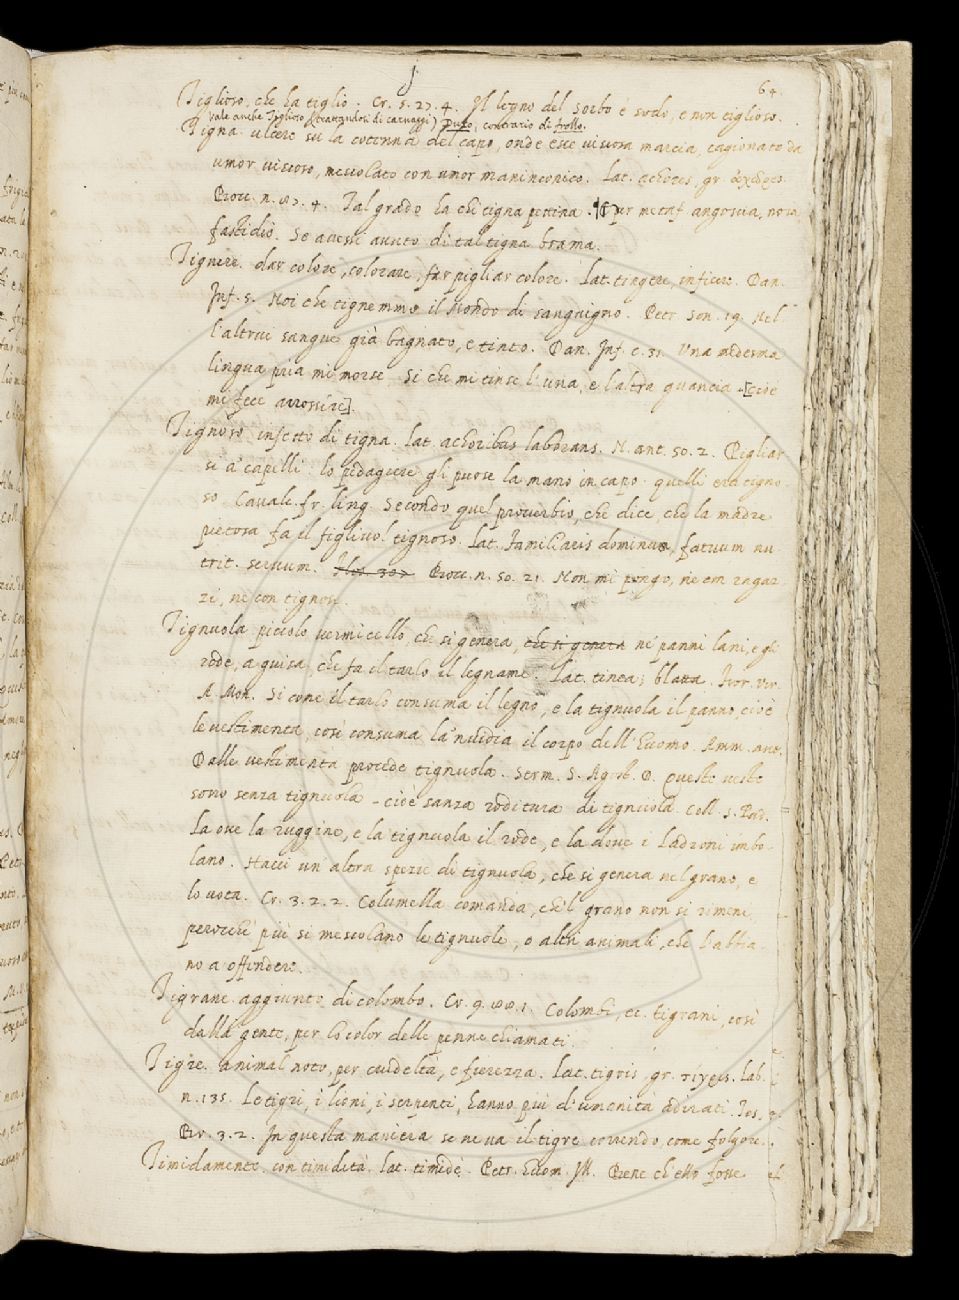 64.
Tiglioso, che ha tiglio. Cr. 5. 27. 4. Il legno del sorbo è sodo, e non tiglioso.
vale anche Tiglioso (trattandosi di carnaggi) Duro, contrario di frollo.
Tigna. ulcere su la cotenna del capo, onde esce viscosa marcia, cagionato da
umor viscoso, mescolato con umor maninconico. Lat. achores, gr. ἀχῶρες
Prov. n. 4. Tal grado ha chi tigna pettina. Per metaf. angoscia, noia
fastidio. Se avessi avuto di tal tigna brama.
Tignere. dar colore, colorare, far pigliar colore. Lat. tingere, inficere. Dan.
Inf. 5. Noi che tignemmo il Mondo di sanguigno. Petr. Son. 19. Nel
l'altrui sangue già bagnato, e tinto. Dan. Inf. c. 31. Una medesma
lingua pria mi morse Si che mi tinse l'una, e l'altra guancia. [cioè
mi fece arrossire].
Tignoso infetto di tigna. Lat. achoribus laborans. N. ant. 50. 2. Pigliar
si a' capelli: lo pedagiere gli puose la mano in capo. quelli era tigno-
so. Cavalc. fr. ling. Secondo quel proverbio, che dice, che la madre
pietosa fa il figliuol tignoso. Lat. Familiaris dominus, fatuum nu
trit servum. Prov. n. 50. 21. Non mi pongo, nè con ragaz-
zi, nè con tignosi.
Tignuola piccolo vermicello, che si genera, che si genera ne' panni lani, e gli
rode, a guisa, che fa il tarlo il legname. Lat. tinea; blatta. Fior. Vir.
A. Mon. Si come il tarlo consuma il legno, e la tignuola il panno, cioè
le vestimenta, così consuma la 'nvidia il corpo dell'Huomo. Amm. ant.
Dalle vestimenta procede tignuola. Serm. S. Agost. D. Queste veste
sono senza tignuola - cioè sanza roditura di tignuola. Coll. S. Pad.
La ove la ruggine, e la tignuola il rode, e la dove i Ladroni imbo-
lano. Hacci un altra spezie di tignuola, che si genera nel grano, e
lo vota. Cr. 3. 2. 2. Columella comanda, che'l grano non si rimeni,
perocchè più si mescolano le tignuole, o altri animali, che l'abbia-
no a offendere.
Tigrane. aggiunto di colombo. Cr. 9. 88. 1. Colombi, ec. tigrani, così
dalla gente, per lo color delle penne chiamati.
Tigre. animal noto, per crudeltà, e fierezza. Lat. tigris, gr. τίγρις. Lab.
n. 135. Le tigri, i lioni, i serpenti, hanno più d'umanità adirati. Tes.
Br. 3. 2. In questa maniera se ne va il tigre correndo, come folgore.
Timidamente. con timidità. Lat. timidè. Petr. Huom. Ill. Bene ch'ello fosse